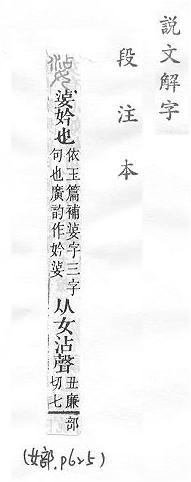 說文解字
段注本
婆姈也 依玉篇補婆字三字句也廣韵作姈婆 从女沾聲 丑廉切七部
(女部.p625)